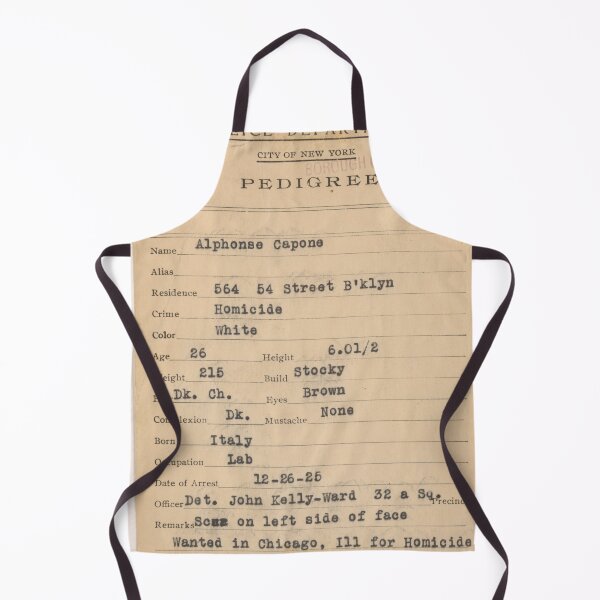 CITY OF NEW YORK
BOROUGH
PEDIGREE
Name Alphonse Capone
Alias
Residence 564 54 Street B'klyn
Crime Homicide
Color White
Age 26 Height 6.01/2
eight 215 Build Stocky
Dk. Ch. Eyes Brown
Dk. Mustache None
Born Italy
Lab
Date of Arrest 12-26-25
Officer Det. John Kelly-Ward 32 a Sq. Precinc
Remarks Scar on left side of face
Wanted in Chicago, Ill for Homicide